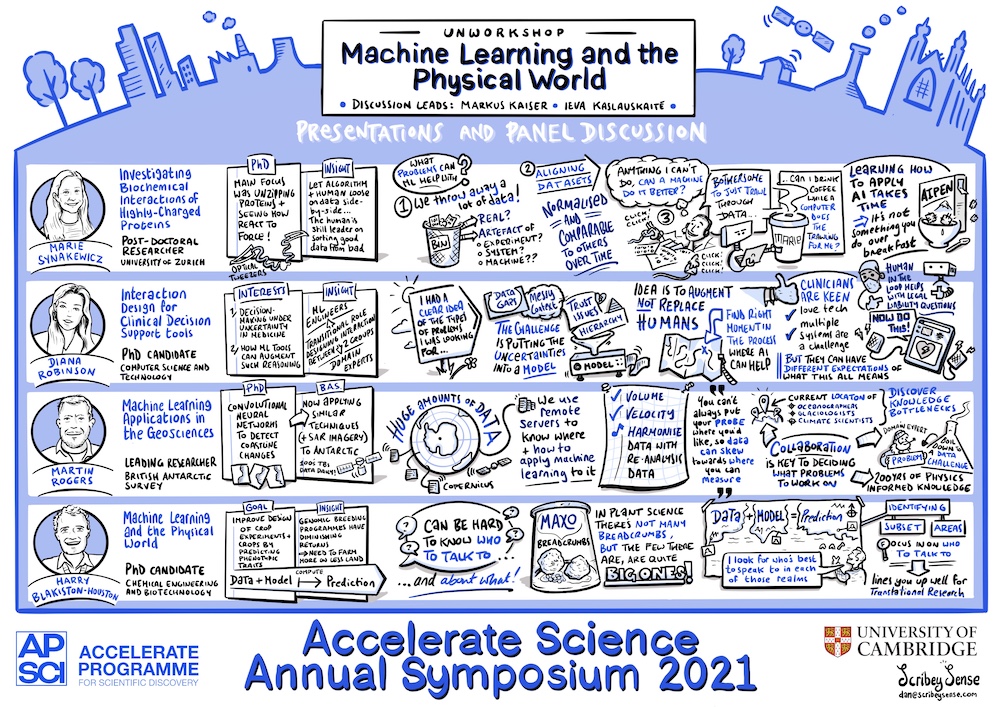 UNWORKSHOP
Machine Learning and the
Physical World
• DISCUSSION LEADS: MARKUS KAISER • IEVA KASLAUSKAITĖ •
PRESENTATIONS AND PANEL DISCUSSION
MARIE
SYNAKEWICZ
Investigating
Biochemical
Interactions of
Highly-Charged
Proteins
POST-DOCTORAL
RESEARCHER
UNIVERSITY OF ZURICH
PhD
MAIN FOCUS
WAS UNZIPPING
PROTEINS +
SEEING HOW
REACT TO
FORCE!
OPTICAL
TWEEZERS
INSIGHT
LET ALGORITHM
+ HUMAN LOOSE
ON DATA SIDE-
BY-SIDE...
THE HUMAN IS
STILL LEADER ON
SORTING GOOD
DATA FROM BAD
WHAT
PROBLEMS CAN
ML HELP WITH
?
1 We throw away a
lot of data!
BIN
REAL?
ARTEFACT OF
EXPERIMENT?
SYSTEM?
MACHINE??
2 ALIGNING
DATASETS
NORMALISED
AND
COMPARABLE
TO OTHERS
OVER TIME
ANYTHING I CAN'T
DO, CAN A MACHINE
DO IT BETTER?
3
CLICK!
CLICK!
CLICK!
CLICK!
CLICK!
BOTHERSOME
TO JUST TRAWL
THROUGH
DATA...
MARIE
...CAN I DRINK
COFFEE
WHILE A
COMPUTER
DOES
THE
TRAWLING
FOR ME?
LEARNING HOW
TO APPLY
AI TAKES
TIME
It's not
something you
do over
breakfast
AIPEN
DIANA
ROBINSON
Interaction
Design for
Clinical Decision
Support Tools
PhD CANDIDATE
COMPUTER SCIENCE AND
TECHNOLOGY
INTERESTS
1 DECISION-
MAKING UNDER
UNCERTAINTY
IN MEDICINE
2 HOW ML TOOLS
CAN AUGMENT
SUCH REASONING
INSIGHT
ML
ENGINEERS
TRANSITIONAL ROLE
DESIGNING INTERACTION
BETWEEN 2 GROUPS
DOMAIN
EXPERTS
I HAD A
CLEAR IDEA
OF THE TYPES
OF PROBLEMS
I WAS LOOKING
FOR...
DATA
GAPS
Messy
Context
TRUST
ISSUES
HIERARCHY
THE CHALLENGE
IS PUTTING THE
UNCERTAINTIES
INTO A MODEL
MODEL
IDEA IS TO AUGMENT
NOT REPLACE
HUMANS
FIND RIGHT
MOMENT IN
THE PROCESS
WHERE AI
CAN HELP
CLINICIANS
ARE KEEN
love tech
multiple
systems are
a challenge
BUT THEY CAN HAVE
DIFFERENT EXPECTATIONS OF
WHAT THIS ALL MEANS
HUMAN
IN THE
LOOP HELPS
WITH LEGAL
LIABILITY QUESTIONS
NOW DO
THIS!
MARTIN
ROGERS
Machine Learning
Applications in
the Geosciences
LEADING RESEARCHER
BRITISH ANTARCTIC
SURVEY
PhD
CONVOLUTIONAL
NEURAL
NETWORKS
TO DETECT
COASTLINE
CHANGES
B.A.S.
NOW APPLYING
SIMILAR
TECHNIQUES
(+ SAR IMAGERY)
TO ANTARCTIC
100s TBs
DATA DOWN!
HUGE AMOUNTS OF DATA
COPERNICUS
We use
remote
servers to
know where
+ how to
apply machine
learning to it
VOLUME
VELOCITY
HARMONISE
DATA WITH
RE-ANALYSIS
DATA
"You can't
always put
your PROBE
where you'd
like, so data
can skew
towards where
you can
measure"
CURRENT LOCATION OF
OCEANOGRAPHERS
GLACIOLOGISTS
CLIMATE SCIENTISTS
COLLABORATION
IS KEY TO DECIDING
WHAT PROBLEMS
TO WORK ON
DISCOVER
KNOWLEDGE
BOTTLENECKS
DOMAIN EXPERT
PROBLEM
BOIL
DOWN TO
A DATA
CHALLENGE
200YRS OF PHYSICS
INFORMED KNOWLEDGE
HARRY
BLAKISTON-HOUSTON
Machine Learning
and the Physical
World
PhD CANDIDATE
CHEMICAL ENGINEERING
AND BIOTECHNOLOGY
GOAL
IMPROVE DESIGN
OF CROP
EXPERIMENTS +
CROPS BY
PREDICTING
PHENOTYPIC
TRAITS
INSIGHT
GENOMIC BREEDING
PROGRAMMES HAVE
DIMINISHING
RETURNS
NEED TO FARM
MORE ON LESS LAND
COMPUTE
DATA + MODEL → Prediction
CAN BE HARD
TO KNOW WHO
TO TALK TO...
...and about what!
MAXO
BREADCRUMBS
IN PLANT SCIENCE
THERE'S NOT MANY
BREADCRUMBS,
BUT THE FEW THERE
ARE, ARE QUITE
BIG ONES!
Data + MODEL = Prediction
I look for who's best
to speak to in each
of those realms
IDENTIFYING
SUBSET AREAS
FOCUS IN ON WHO
TO TALK TO
lines you up well for
Translational Research
AP
SCI
ACCELERATE
PROGRAMME
FOR SCIENTIFIC DISCOVERY
Accelerate Science
Annual Symposium 2021
UNIVERSITY OF
CAMBRIDGE
Scribey Sense
dan@scribeysense.com